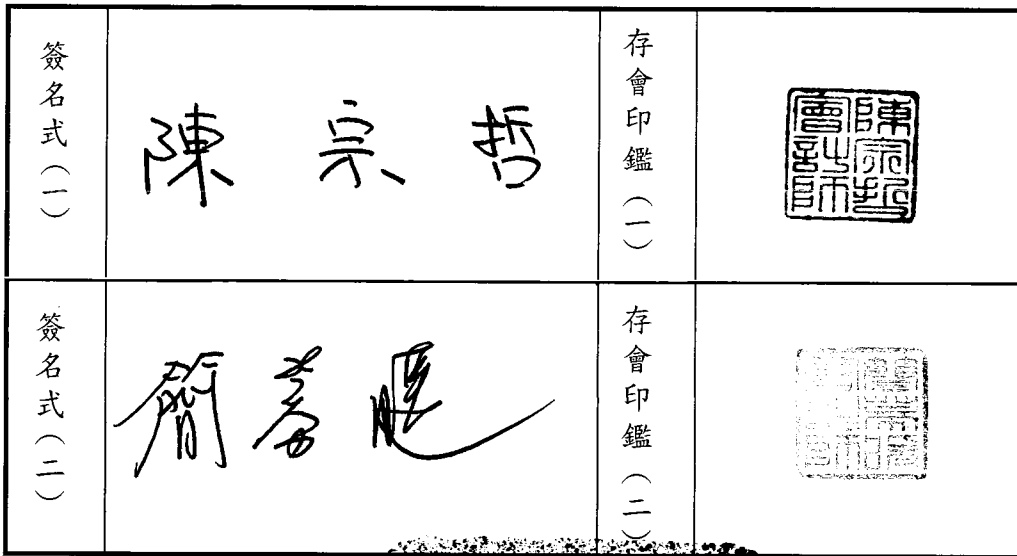 簽名式（一）
陳宗哲
存會印鑑（一）
陳宗哲會計師
簽名式（二）
存會印鑑（二）